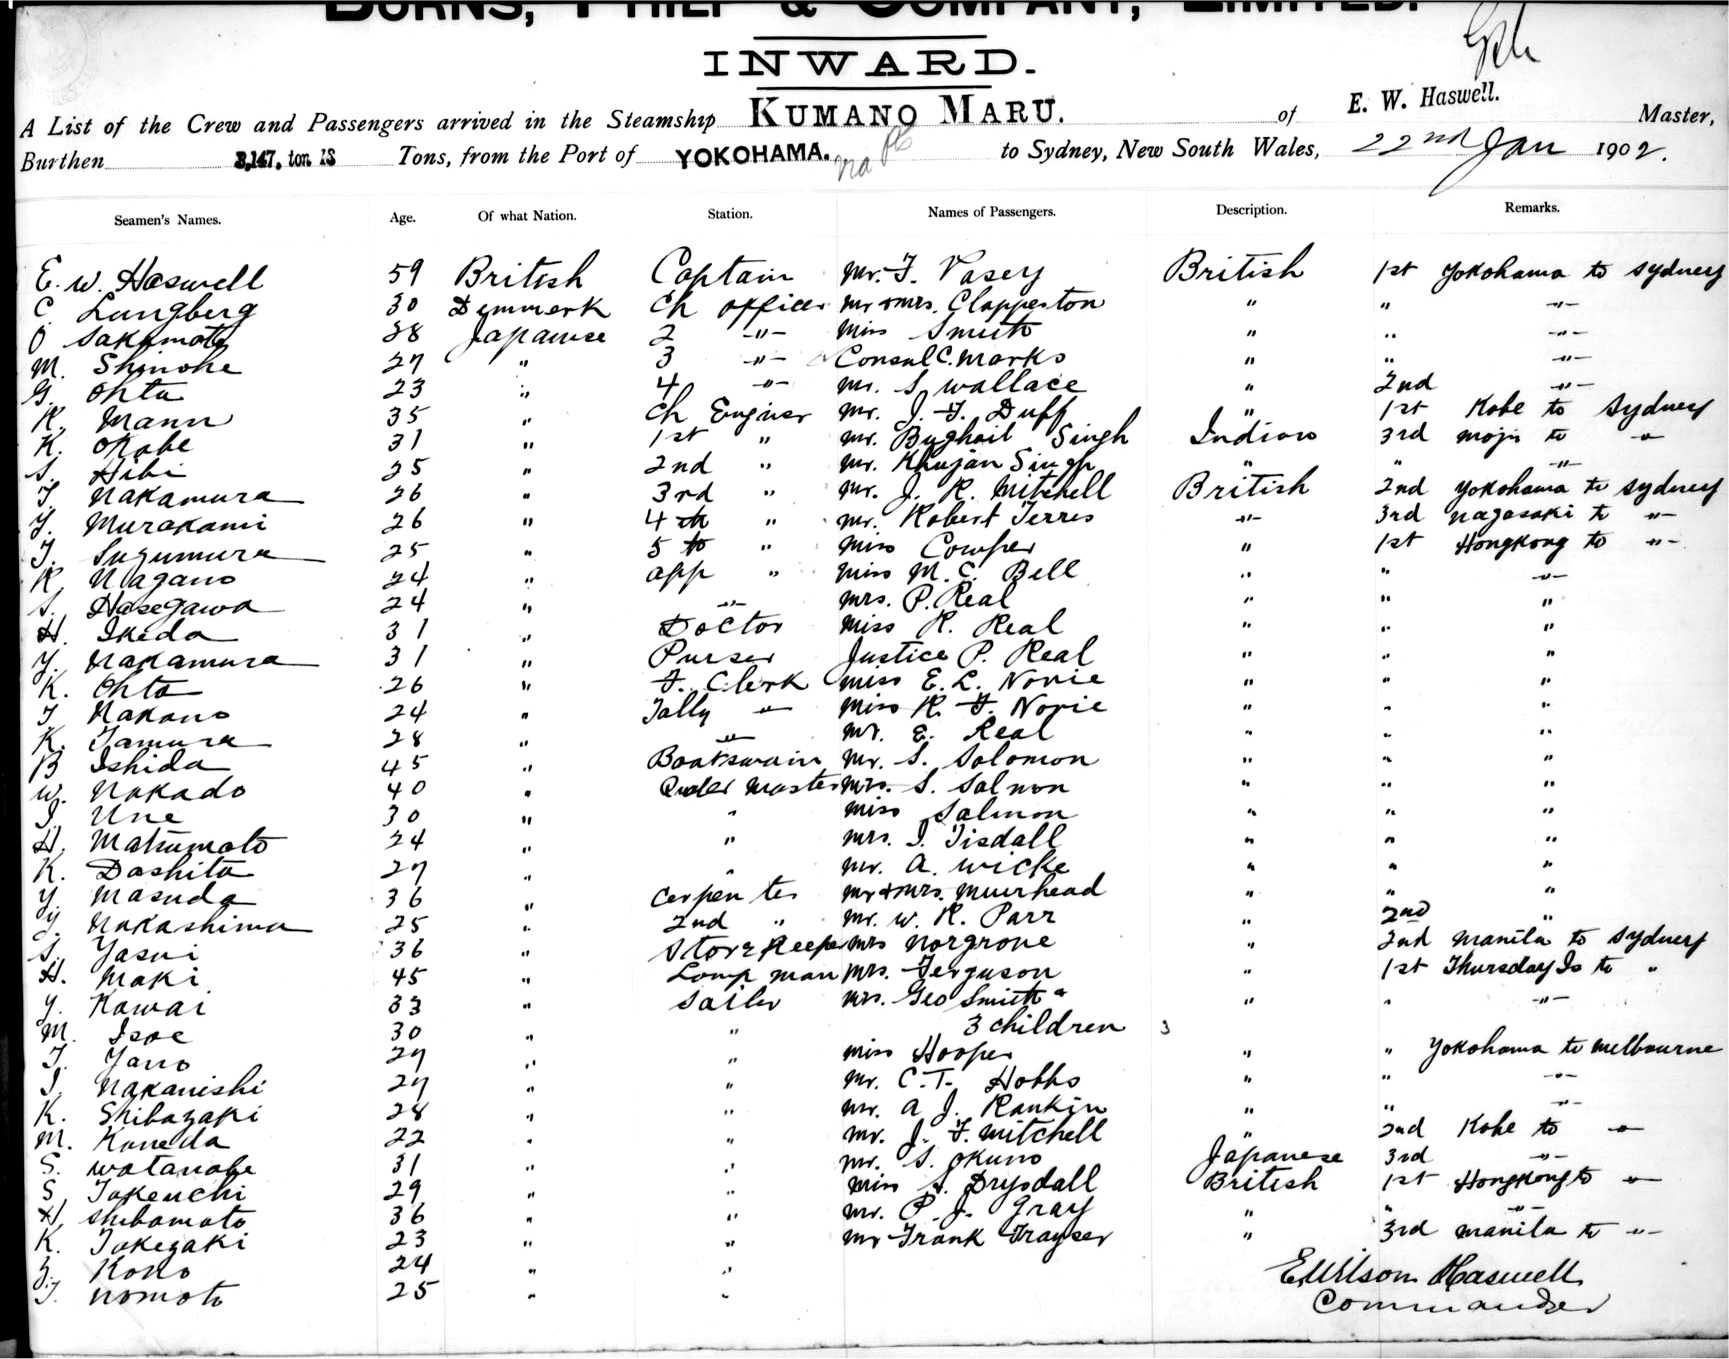 BURNS, PHILP & COMPANY, LIMITED.
INWARD.
A List of the Crew and Passengers arrived in the Steamship KUMANO MARU. of E. W. Haswell. Master,
Burthen 3,147. ton 13 Tons, from the Port of YOKOHAMA. to Sydney, New South Wales, 22nd Jan 1902.
Seamen's Names. Age. Of what Nation. Station. Names of Passengers. Description. Remarks.
E. W. Haswell 59 British Captain Mr. F. Vasey British 1st Yokohama to Sydney
C. Lungberg 30 Denmerk Ch officer Mr & Mrs. Clapperton " " -"-
O Sakamoto 38 Japanese 2 -"- Miss Smith " " -"-
M. Shinohe 27 " 3 -"- Consul C. Marks " " -"-
G. Ohta 23 " 4 -"- Mr. S. Wallace " 2nd -"-
K. Mann 35 " Ch Enginer Mr. J. F. Duff " 1st Kobe to Sydney
K. Okabe 31 " 1st " Mr. Bughail Singh Indian 3rd Moji to "
S. Hibi 25 " 2nd " Mr. Khujan Singh " " -"-
T. Nakamura 26 " 3rd " Mr. J. K. Mitchell British 2nd Yokohama to Sydney
Y. Murakami 26 " 4th " Mr. Robert Ferres -"- 3rd Nagasaki to -"-
T. Sugumura 25 " 5th " Miss Cowper " 1st Hongkong to -"-
K. Nagano 24 " app " Miss M. C. Bell " " -"-
S. Hasegawa 24 " -"- Mrs. P. Real " " "
H. Ikeda 31 " Doctor Miss K. Real " " "
Y. Nakamura 31 " Purser Justice P. Real " " "
K. Ohta 26 " F. Clerk Miss E. L. Norie " " "
T Nakano 24 " Tally " Miss K. F. Norie " " "
K. Tamura 28 " -"- Mr. E. Real " " "
B Ishida 45 " Boatswain Mr. S. Solomon " " "
W. Nakado 40 " Quder Master Mrs. S. Salmon " " "
I. Une 30 " " Miss Salmon " " "
H. Matsumoto 24 " " Mrs. I. Tisdall " " "
K. Dashita 27 " " Mr. A. Wicke " " "
Y. Masuda 36 " Carpenter Mr & Mrs. Muirhead " " "
Y. Nakashima 25 " 2nd " Mr. W. K. Parr " 2nd "
S. Yasui 36 " Store Keeper Mrs Norgrove " 2nd Manila to Sydney
H. Maki 45 " Lamp man Mrs. Ferguson " 1st Thursday Is to "
Y. Kawai 33 " Sailor Mrs. Geo Smith & " " -"-
M. Isoe 30 " " 3 children 3
T. Yano 27 " " Miss Hooper " " Yokohama to Melbourne
I. Nakanishi 27 " " Mr. C. T. Hobbs " " -"-
K. Shibazaki 28 " " Mr. A J. Rankin " " -"-
M. Kaneda 22 " " Mr. J. F. Mitchell " 2nd Kobe to "
S. Watanabe 31 " " Mr. S. Okuno Japanese 3rd -"-
S. Takeuchi 29 " " Miss S. Drysdall British 1st Hongkong to "
H. Shibamoto 36 " " Mr. P. J. Gray " " -"-
K. Takezaki 23 " " Mr Frank Frayser " 3rd Manila to -"-
Kono 24 " "
T. Nomoto 25 " "
E Wilson Haswell
Commander